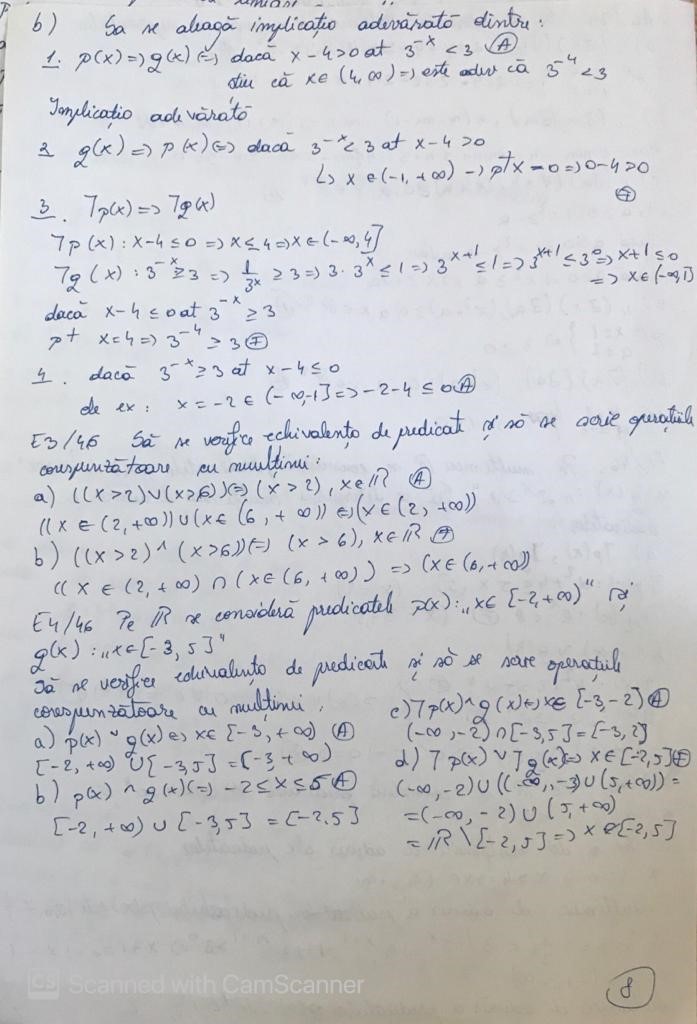 b) Să se aleagă implicația adevărată dintre:
1. p(x) => g(x) (=> dacă x-4>0 at 3^-x < 3 (A)
știu că x∈(4,∞) => este adev că 3^-4 < 3
Implicație adevărată
2 g(x) => p(x) (=> dacă 3^-x < 3 at x-4 >0
↳ x ∈ (-1, +∞) -> pt x=0 => 0-4>0
(F)
3. ⌉p(x) => ⌉g(x)
⌉p(x): x-4 ≤ 0 => x ≤ 4 => x∈(-∞,4]
⌉g(x): 3^-x ≥ 3 => 1/3^x ≥ 3 => 3·3^x ≤ 1 => 3^x+1 ≤ 1 => 3^x+1 ≤ 3^0 => x+1 ≤ 0
=> x∈(-∞,1]
dacă x-4 ≤ 0 at 3^-x ≥ 3
pt x=4 => 3^-4 ≥ 3 (F)
4. dacă 3^-x ≥ 3 at x-4 ≤ 0
de ex: x=-2 ∈ (-∞,-1] => -2-4 ≤ 0 (A)
E3/46 Să se verifice echivalența de predicate și să se scrie operațiile
corespunzătoare cu mulțimi:
a) ((x>2)∨(x>6)) (=) (x>2), x∈ℝ (A)
((x ∈ (2,+∞)) ∪ (x∈ (6, +∞)) (=) (x∈(2, +∞))
b) ((x>2) ^ (x>6)) (=) (x>6), x∈ℝ
((x ∈ (2,+∞) ∩ (x∈(6,+∞)) => (x∈(6,+∞))
E4/46 Pe ℝ se consideră predicatele p(x): „x∈ [-2,+∞)" și
g(x): „x∈[-3, 5]"
Să se verifice echivalența de predicate și să se scrie operațiile
corespunzătoare cu mulțimi.
a) p(x) ∨ g(x) (=> x∈ [-3, +∞) (A)
[-2, +∞) ∪ [-3,5] = [-3, +∞)
b) p(x) ∧ g(x) (=) -2 ≤ x ≤ 5 (A)
[-2, +∞) ∪ [-3,5] = [-2,5]
c) ⌉p(x) ^ g(x) (=> x∈ [-3,-2) (A)
(-∞, -2) ∩ [-3,5] = [-3, 2)
d) ⌉p(x) ∨ ⌉g(x) (=> x∈[-2,5] (F)
(-∞,-2) ∪ ((-∞,-3) ∪ (5,+∞)) =
= (-∞, -2) ∪ (5, +∞)
= ℝ \ [-2, 5] => x ∉ [-2,5]
8
CS Scanned with CamScanner